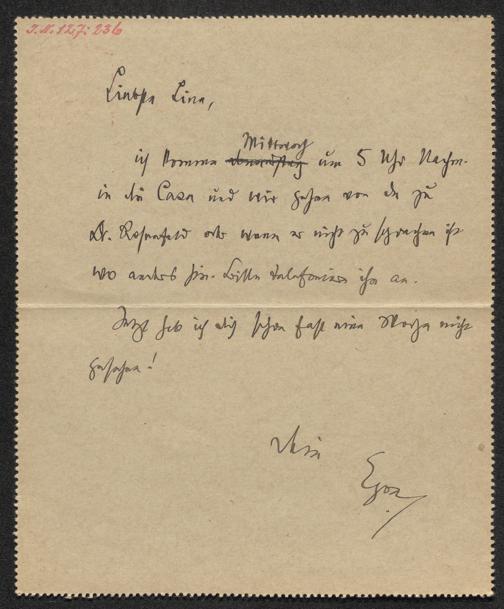 I.N. 127.236
Liebste Lina,
Mittwoch
ich komme Donnerstag um 5 Uhr Nachm.
in die Casa und wir gehen von da zu
Dr. Rosenfeld oder wenn er nicht zu sprechen ist
wo anders hin. Bitte telefoniere ihm an.
Jetzt hab ich dich schon fast eine Woche nicht
gesehen!
Dein
Egon